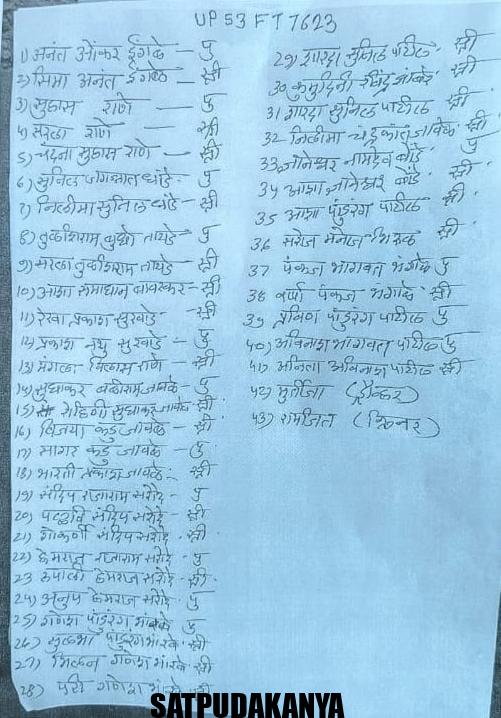 UP 53 FT 7623
1) अनंत ओंकार इंगळे — पु
2) सिमा अनंत इंगळे — स्त्री
3) सुहास राणे — पु
4) सरला राणे — स्त्री
5) चंदना सुहास राणे — स्त्री
6) सुनिल जगन्नाथ धांडे - पु
7) निलीमा सुनिल धांडे - स्त्री
8) तुळशीराम तायडे पु
9) सरला तुळशीराम तायडे स्त्री
10) आशा समाधान बावस्कर - स्त्री
11) रेखा प्रकाश सुरवाडे - स्त्री
12) प्रकाश नथु सुरवाडे - पु
13) मंगला विलास राणे स्त्री
14) सुधाकर बळीराम जावळे - पु
15) रोहिणी सुधाकर जावळे स्त्री
16) विजया कडु जावळे - स्त्री
17) सागर कडु जावळे - पु
18) भारती प्रकाश जावळे - स्त्री
19) संदिप राजाराम सरोदे - पु
20) पल्लवी संदिप सरोदे - स्त्री
21) गोकर्णी संदिप सरोदे - स्त्री
22) हेमराज राजाराम सरोदे - पु
23 रुपाली हेमराज सरोदे - स्त्री
24) अनुप हेमराज सरोदे - पु
25) गणेश पांडुरंग भारंबे पु
26) सुलभा पांडुरंग भारंबे स्त्री
27) मिलन गणेश भारंबे स्त्री
28) परी गणेश भारंबे स्त्री
29) शारदा सुनिल पाटील स्त्री
30 कुमुदिनी जावळे स्त्री
31 शारदा सुनिल पाटील स्त्री
32 निलीमा चंद्रकांत जावळे स्त्री
33 ज्ञानेश्वर नामदेव बोंडे पु
34 आशा ज्ञानेश्वर बोंडे स्त्री
35 आशा पांडुरंग पाटील स्त्री
36 सरोज मनोज भिरुड स्त्री
37 पंकज भागवत भंगाळे पु
38 वर्षा पंकज भंगाळे स्त्री
39 प्रविण पांडुरंग पाटील पु
40) अविनाश भागवत पाटील पु
41) अनिता अविनाश पाटील स्त्री
42) मुर्तीजा (ड्रायव्हर)
43) रामजित (क्लिनर)
SATPUDAKANYA